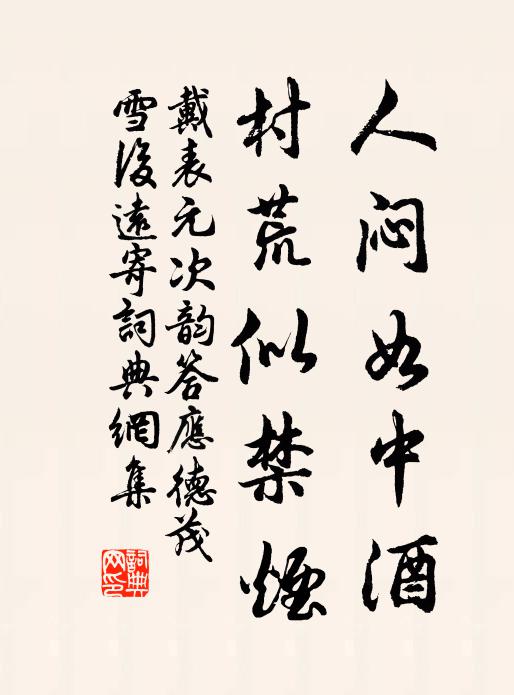 人闷如中酒
村荒似禁烟
戴表元次韵答應德茂
雪後遠寄詞典網集
詞典網印